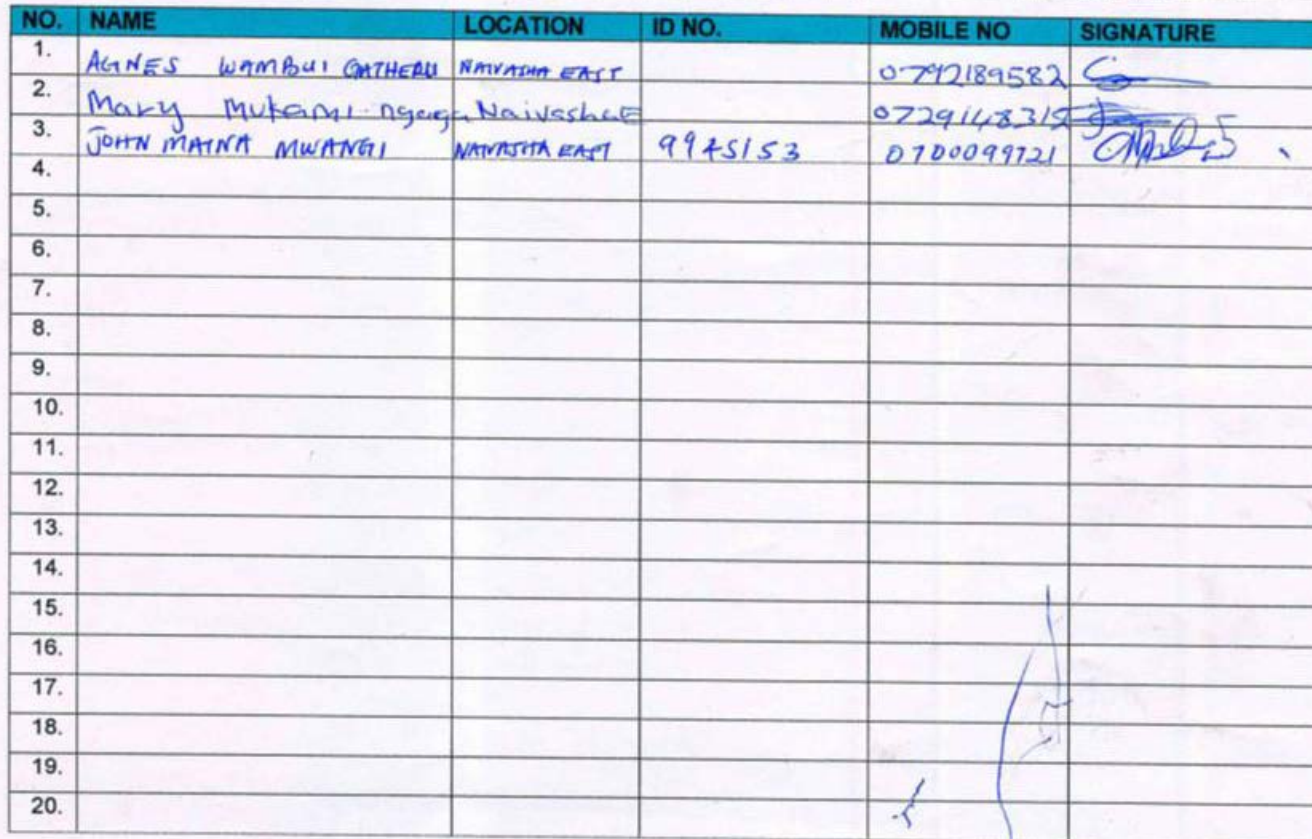 NO. NAME LOCATION ID NO. MOBILE NO SIGNATURE
1. AGNES WAMBUI GATHERU NAIVASHA EAST 0792189582
2. Mary Mukami ngugi Naivasha E 0729148315
3. JOHN MAINA MWANGI NAIVASHA EAST 9945153 0700099721
4.
5.
6.
7.
8.
9.
10.
11.
12.
13.
14.
15.
16.
17.
18.
19.
20.